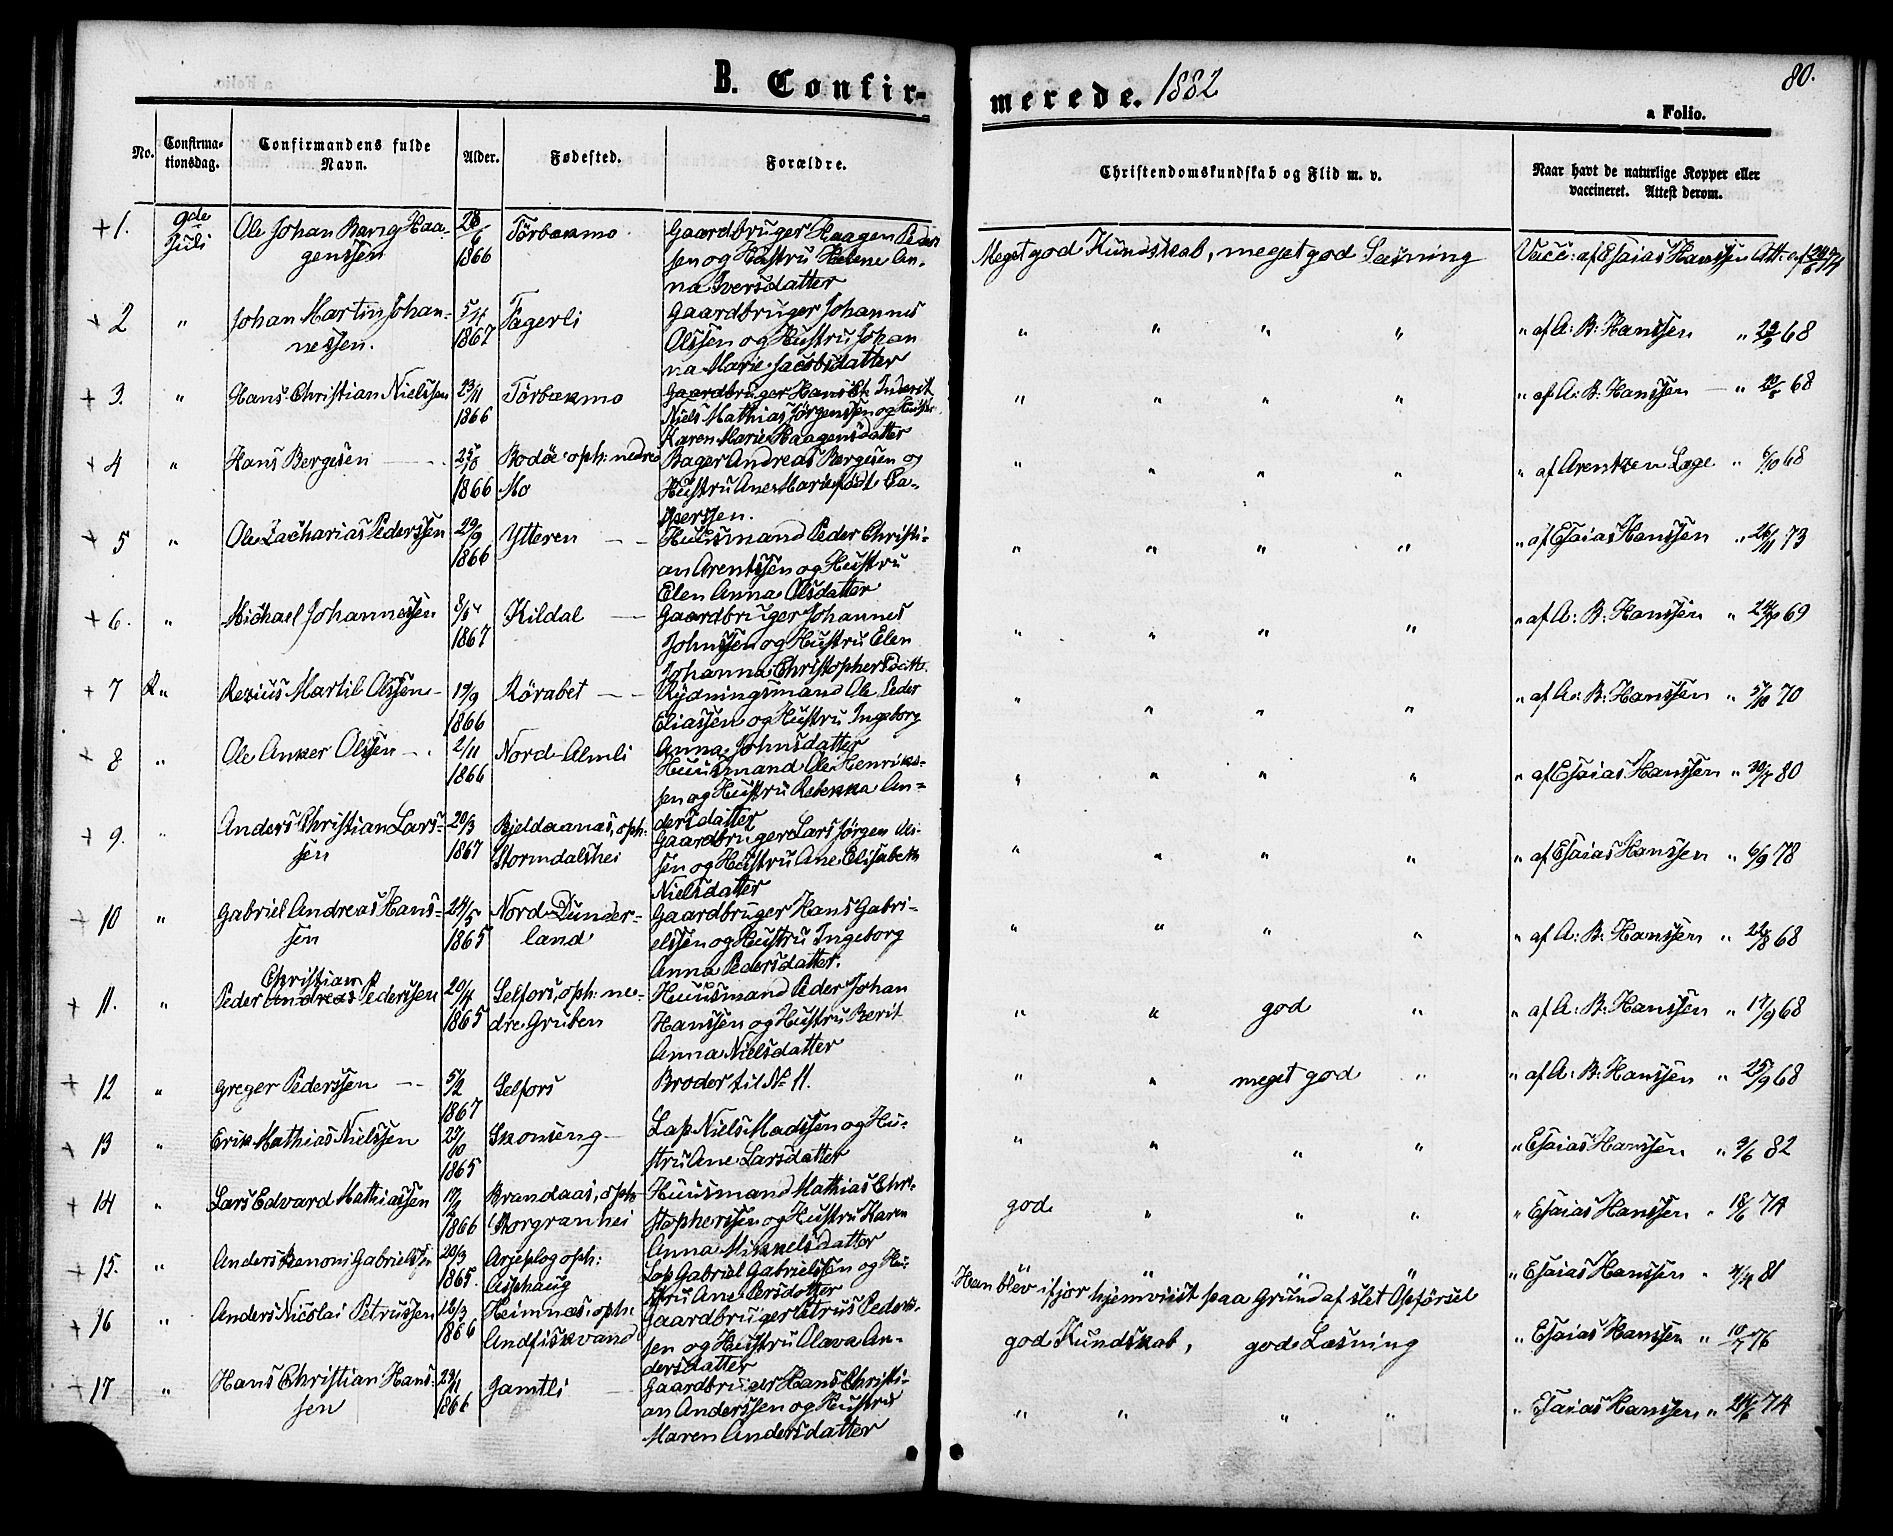 B. Confir-
merede. 1882
80.
a Folio.
No.
Confirma-
tionsdag.
Confirmandens fulde
Navn.
Alder.
Fødested.
Forældre.
Christendomskundskab og Flid m. v.
Naar havt de naturlige Kopper eller
vaccineret. Attest derom.
+ 1. 9de Juli Ole Johan Bang Haa- Törbækmo Gaardbruger Haagen Peder-
genssen 1866 sen og Hustru Helene An-
na Iversdatter
Meget god Kundskab, meget god Læsning Vacc: af Esaias Hanssen Att: af
+ 2 " Johan Martin Johan- 1867 Fagerli Gaardbruger Johannes
nessen. Olssen og Hustru Johan
na Marie Jacobsdatter
" " " " " af A: B: Hanssen " 68
+ 3. " Hans Christian Nielssen 23/11 1866 Törbækmo Gaardbruger Hans
Niels Mathias Jørgenssen og Hustr.
Karen Marie Haagensdatter
" " " " " af A: B: Hanssen — " 68
+ 4 " Hans Bergesen 1866 Bodöe oph: nedre Bager Andreas Bergesen og
Mo Hustru Ane Marie födt Ca-
sperssen.
" " " " " af Arentzen Læge " 9/10 68
+ 5 " Ole Zacharias Pederssen 29/9 1866 Ytteren Huusmand Peder Christi-
an Arentssen og Hustru
Elen Anna Olsdatter
" " " " " af Esaias Hanssen " 26/11 73
+ 6. " Michael Johannessen 1867 Kildal Gaardbruger Johannes
Johnssen og Hustru Elen
Johanna Christophersdatt.
" " " " " af A: B: Hanssen " 69
+ 7 " Rezius Martil Olssen 14/9 1866 Rörabet Rydningsmand Ole Peder
Eliassen og Hustru Ingeborg
Anna Johnsdatter
" " " " " af A: B: Hanssen " 5/10 70
+ 8 " Ole Anker Olssen 2/11 1866 Nord-Almli Huusmand Ole Henriks-
sen og Hustru Rebekka An-
dersdatter
" " " " " af Esaias Hanssen " 80
+ 9. " Anders Christian Lars- 20/3 1867 Bjeldaanæs, oph: Gaardbruger Lars Jörgen Ol-
sen Stormdalshei sen og Hustru Ane Elisabeth
Nielsdatter
" " " " " af Esaias Hanssen " 6/9 78
+ 10 " Gabriel Andreas Hans- 24/5 1865 Nord-Dunder- Gaardbruger Hans Gabri-
sen land elssen og Hustru Ingeborg
Anna Pedersdatter.
" " " " " af A: B: Hanssen " 22/8 68
Christian
+ 11. " Peder Andreas Pederssen 20/4 1865 Selfors, oph: ne- Huusmand Peder Johan
dre Gruben Hanssen og Hustru Berit
Anna Nielsdatter
" " god " " af A: B: Hanssen " 17/9 68
+ 12 " Greger Pederssen 5/2 1867 Selfors Broder til No 11.
" " meget god " " af A: B: Hanssen " 25/9 68
+ 13 " Erik Mathias Nielssen 27/10 1865 Skonseng Lap Niels Madssen og Hu-
stru Ane Larsdatter
" " " " " Esaias Hanssen " 9/6 82
+ 14 " Lars Edvard Mathiassen 17/2 1866 Brandaas, oph Huusmand Mathias Chri-
Storgranhei stopherssen og Hustru Karen
Anna Mikkelsdatter
god " " " " Esaias Hanssen " 18/6 74
+ 15. " Anders Benoni Gabrielssen 20/3 1865. Arjeplog oph: Lap Gabriel Gabrielssen og Hu-
Asphaug stru Ane Persdatter
" " " " " Esaias Hanssen " 81
Han blev ifjor hjemviist paa Grund af slet Opförsel
+ 16 " Anders Nicolai Petrussen 18/3 1866 Heimnæs oph: Gaardbruger Petrus Peders-
Andfiskvand sen og Hustru Olava An-
dersdatter
god Kundskab, god Læsning " Esaias Hanssen " 10/7 76
+ 17 " Hans Christian Hans- 1866 Jamtli Gaardbruger Hans Christi-
sen an Anderssen og Hustru
Maren Andersdatter
" " " " " Esaias Hanssen " 24/6 74